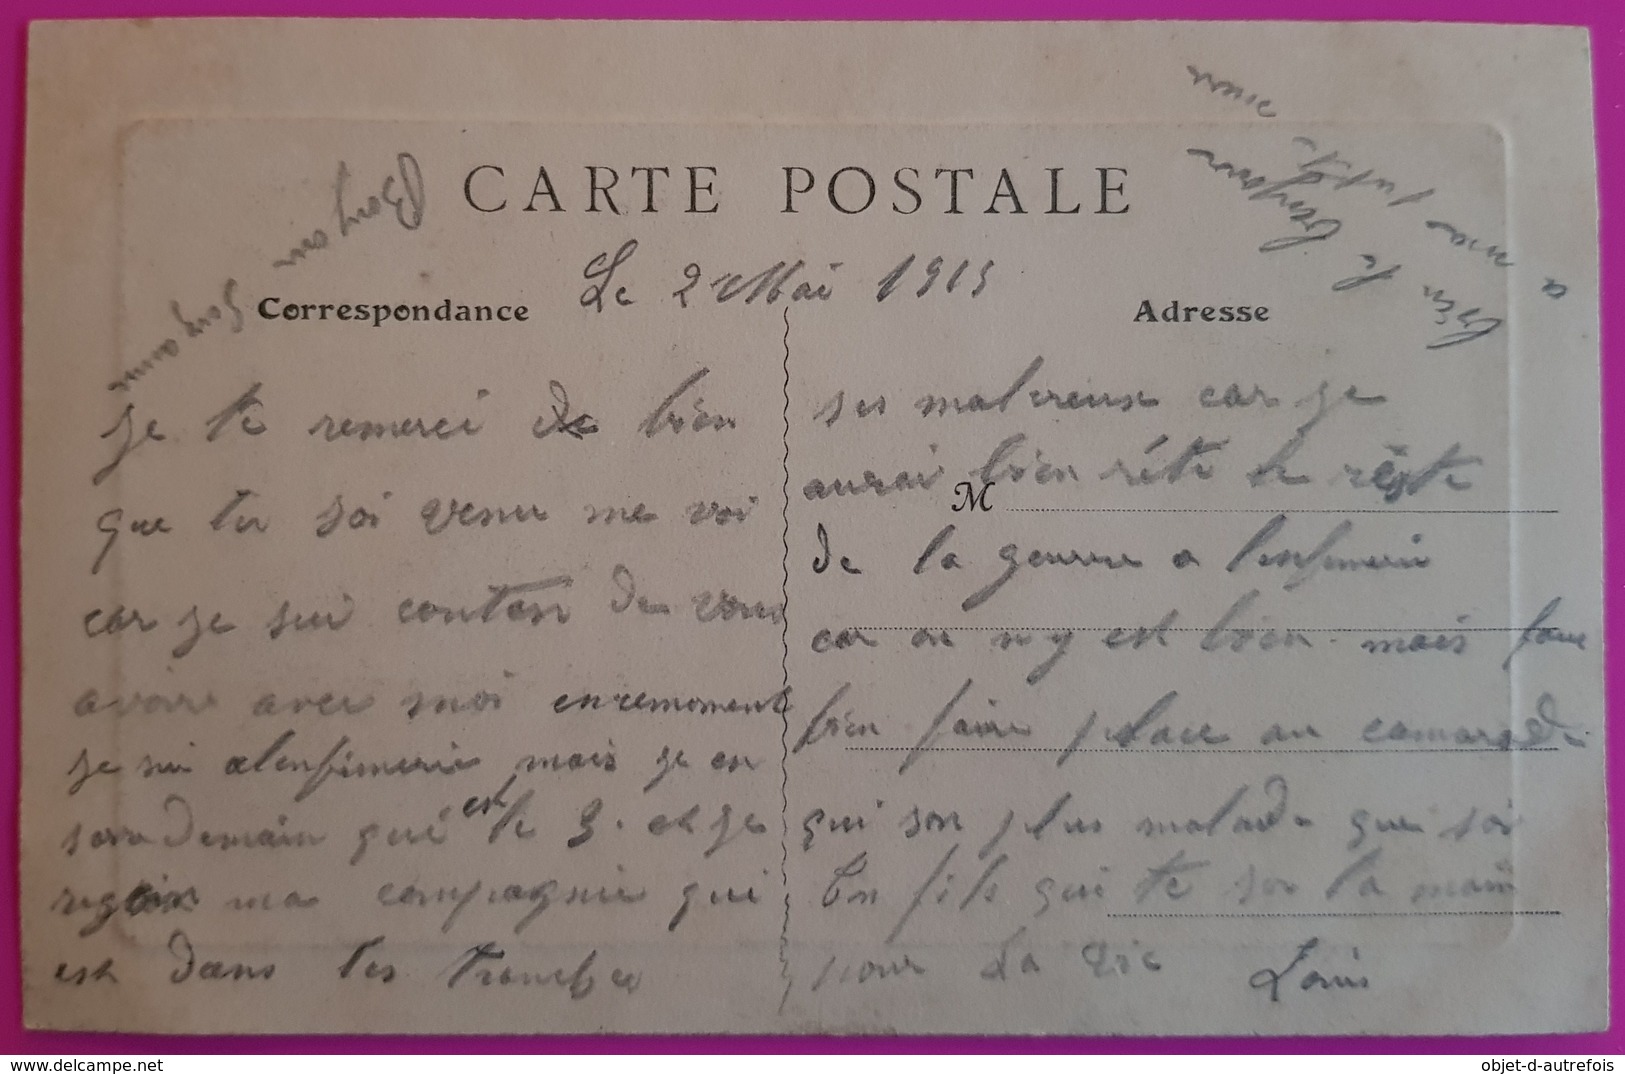 CARTE POSTALE
Le 2 Mai 1915
Correspondance
Adresse
M
je te remerci de bien
que tu soi venu me voi
car je sui contan de vous
avoire avec moi enremoment
je sui alenfimerie mais je en
sora demain qui est le 3. et je
regoin ma compagnie qui
est dans les tranches
ses malereux car je
aurai bien réte le rèste
de la geurre a lenfimerie
car on n y est bien mais faux
bien faire place au camarade
qui son plus malade que soi
Ton fils qui te ser la main
pour la vie Louis
Bonjour
a ma
delcampe.net
objet-d-autrefois